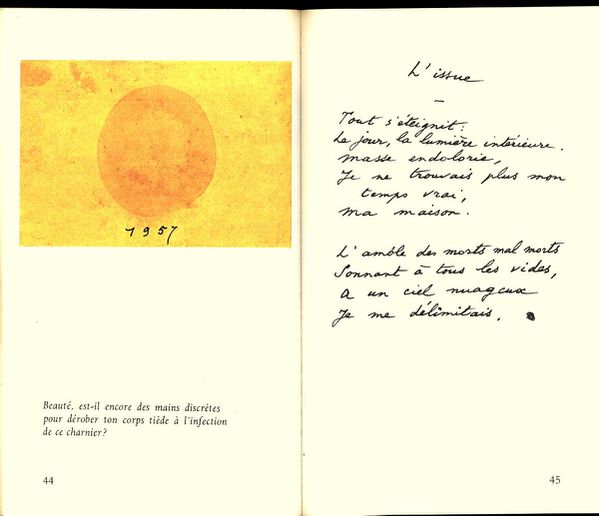 1957
Beauté, est-il encore des mains discrètes
pour dérober ton corps tiède à l'infection
de ce charnier?
44
L'issue
Tout s'éteignit:
Le jour, la lumière intérieure.
Masse endolorie,
Je ne trouvais plus mon
temps vrai,
Ma maison.
L'amble des morts mal morts
Sonnant à tous les vides,
A un ciel nuageux
Je me délimitais.
45